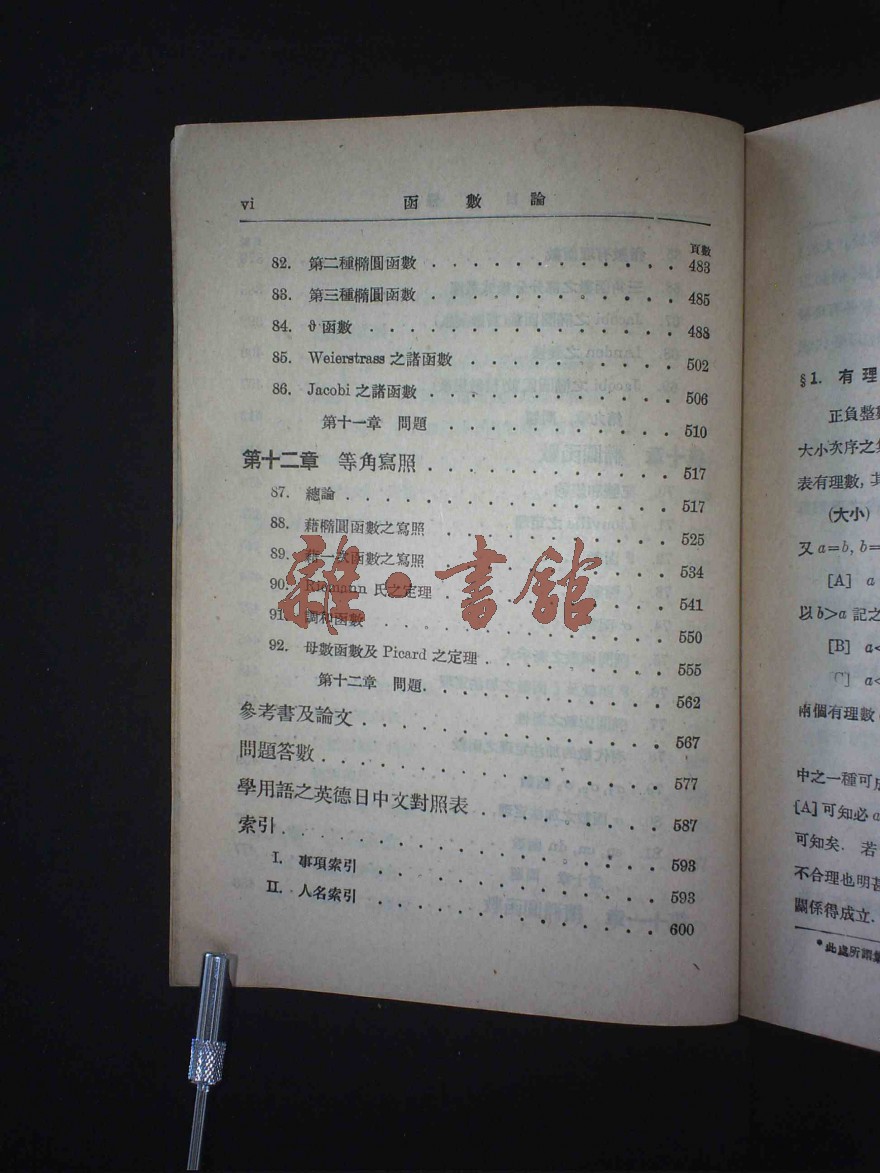 vi 函數論
頁數
82. 第二種橢圓函數 . . . . . . . . . . . . 483
83. 第三種橢圓函數 . . . . . . . . . . . . 485
84. ϑ函數 . . . . . . . . . . . . 488
85. Weierstrass 之諸函數 . . . . . . . . . . . . 502
86. Jacobi 之諸函數 . . . . . . . . . . . . 506
第十一章 問題 . . . . . . . . . . . . 510
第十二章 等角寫照 . . . . . . . . . . . . 517
87. 總論 . . . . . . . . . . . . 517
88. 藉橢圓函數之寫照 . . . . . . . . . . . . 525
89. 藉一次函數之寫照 . . . . . . . . . . . . 534
90. Riemann 氏之定理 . . . . . . . . . . . . 541
91. 調和函數 . . . . . . . . . . . . 550
92. 母數函數及 Picard 之定理 . . . . . . . . . . . . 555
第十二章 問題. . . . . . . . . . . . 562
參考書及論文 . . . . . . . . . . . . 567
問題答數 . . . . . . . . . . . . 577
學用語之英德日中文對照表 . . . . . . . . . . . . 587
索引 . . . . . . . . . . . . 593
I. 事項索引 . . . . . . . . . . . . 593
II. 人名索引 . . . . . . . . . . . . 600
雜·書館
§1. 有理
正負整
大小次序之
表有理數, 其
(大小)
又 a=b, b=
[A] a
以 b>a 記之
[B] a<
C] a<
兩個有理數
中之一種可成
[A]可知必 a
可知矣. 若
不合理也明甚
關係得成立.
* 此處所謂